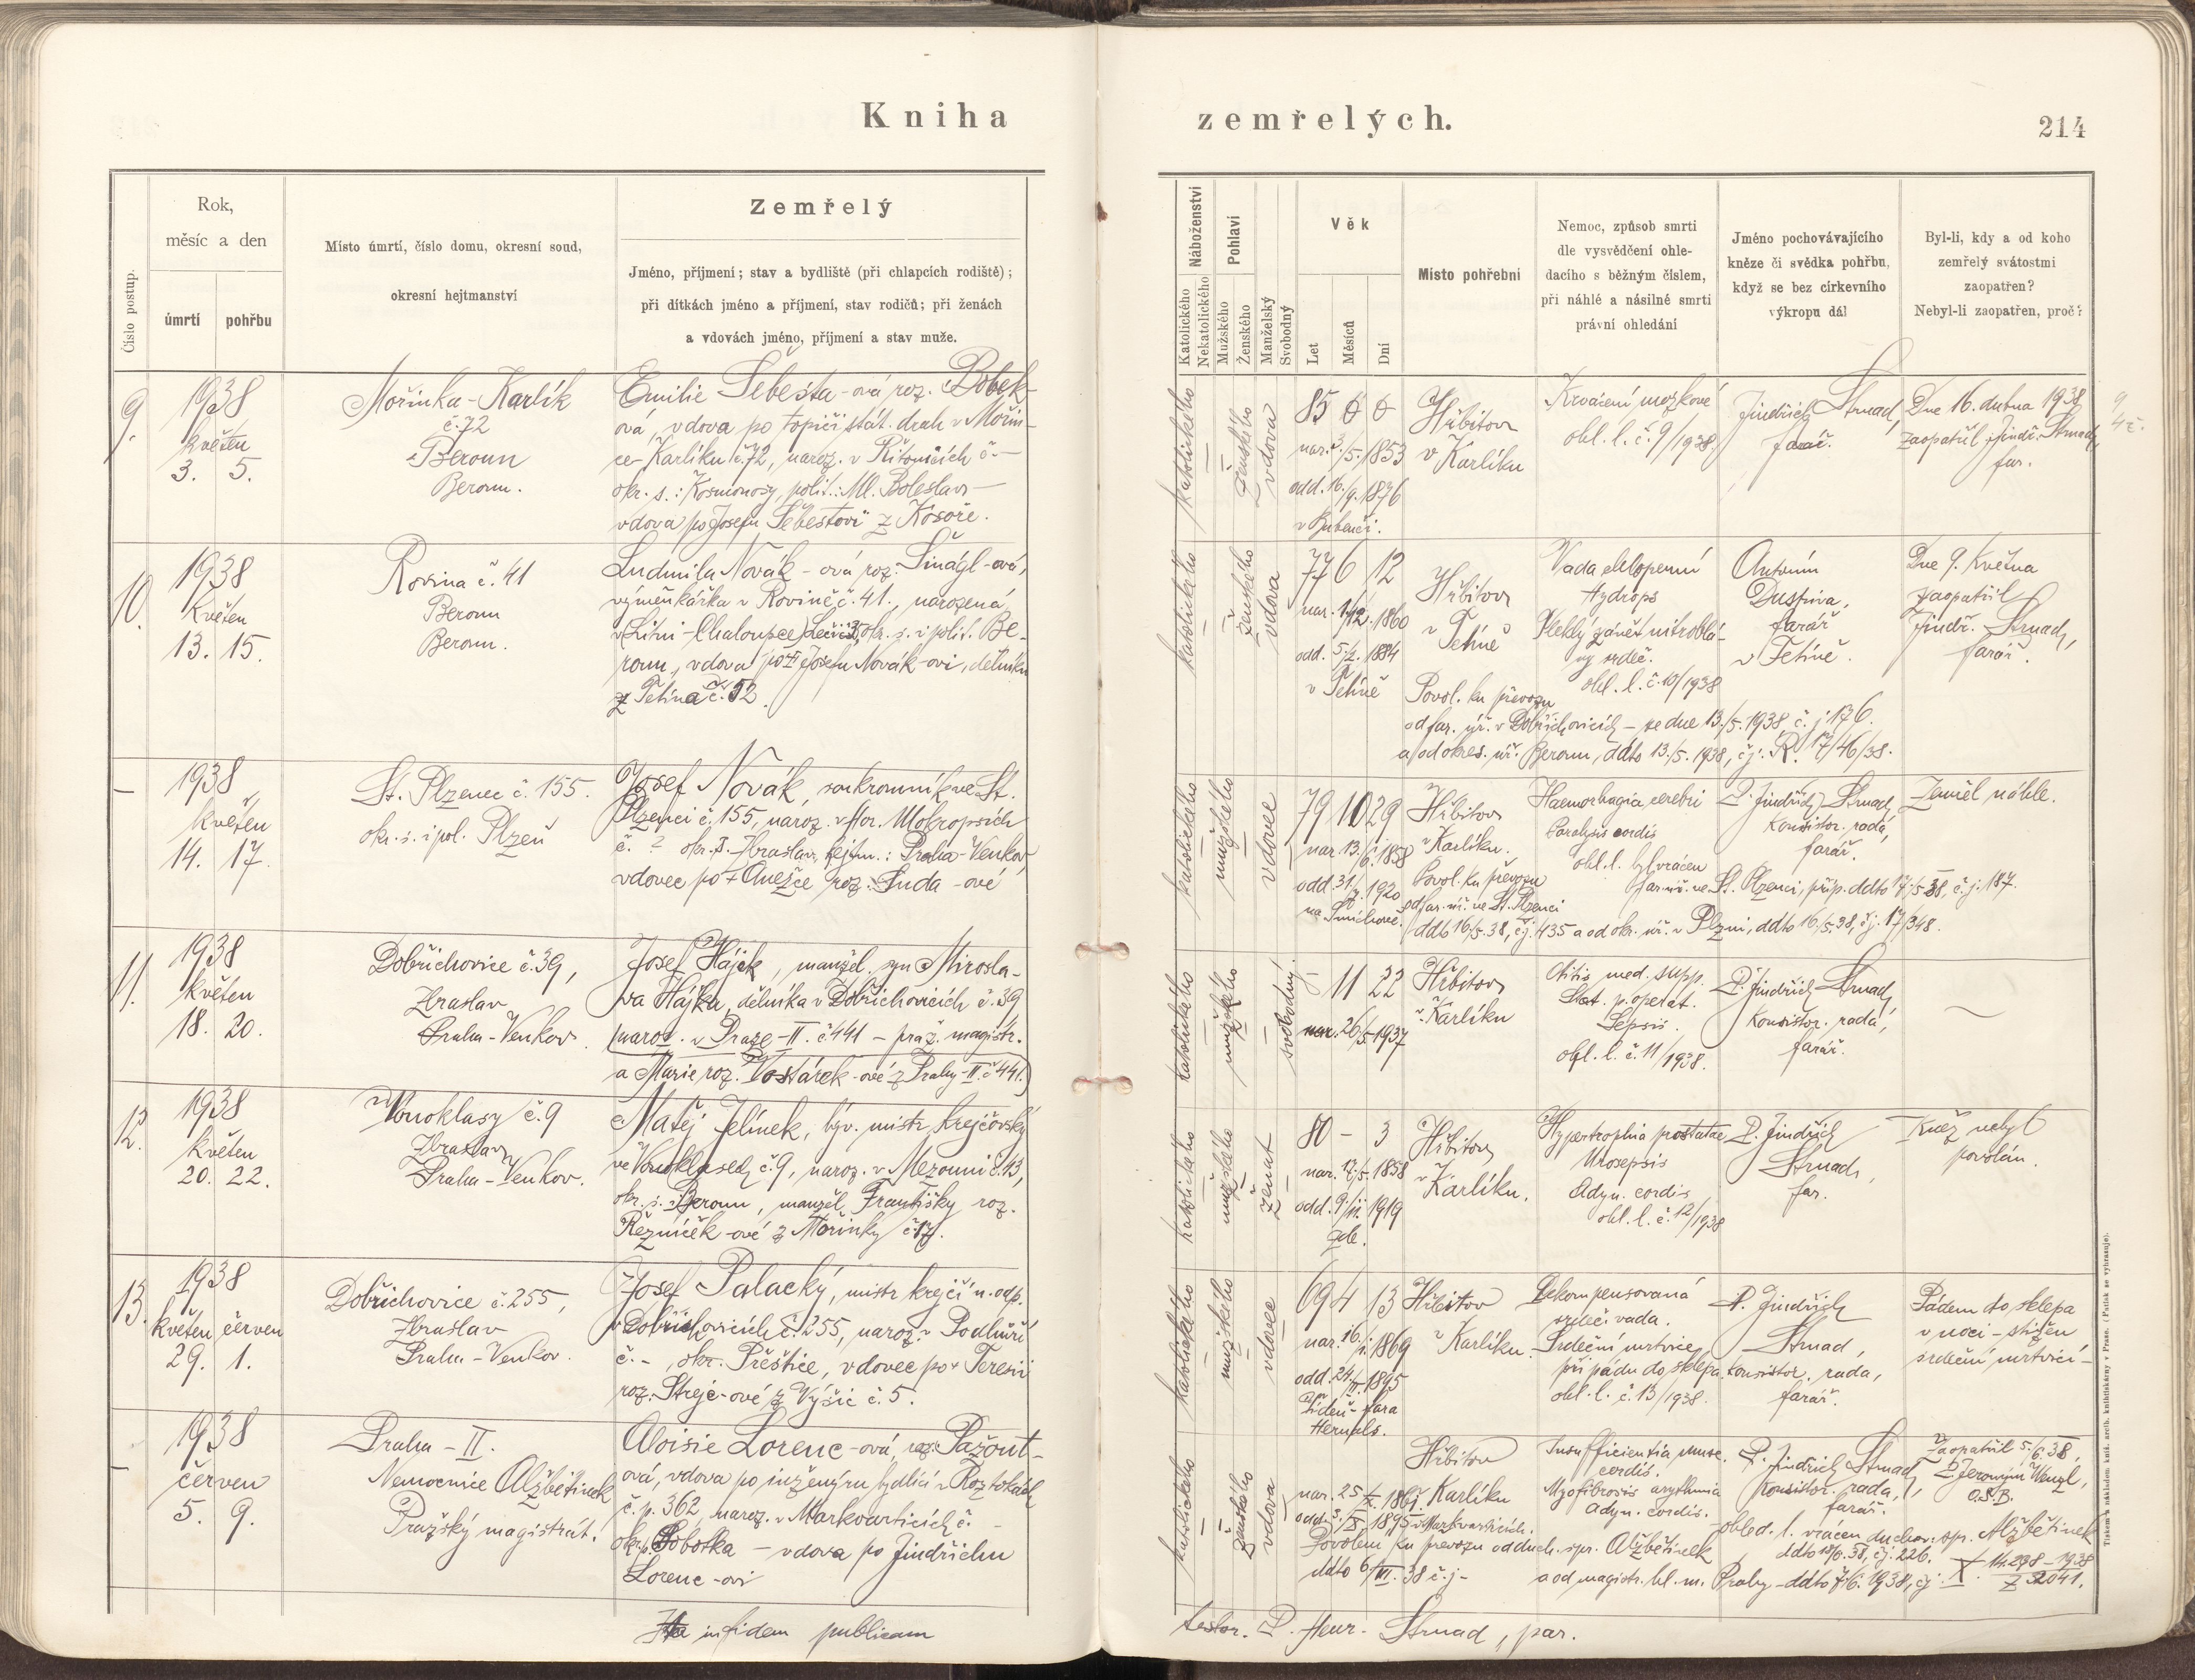 Kniha zemřelých.
214
Číslo postup.
Rok,
měsíc a den
úmrtí
pohřbu
Místo úmrtí, číslo domu, okresní soud,
okresní hejtmanství
Zemřelý
Jméno, příjmení; stav a bydliště (při chlapcích rodiště);
při dítkách jméno a příjmení, stav rodičů; při ženách
a vdovách jméno, příjmení a stav muže.
Náboženství
Katolického
Nekatolického
Pohlaví
Mužského
Ženského
Manželský
Svobodný
Věk
Let
Měsíců
Dní
Místo pohřební
Nemoc, způsob smrti
dle vysvědčení ohle-
dacího s běžným číslem,
při náhlé a násilné smrti
právní ohledání
Jméno pochovávajícího
kněze či svědka pohřbu,
když se bez církevního
výkropu dál
Byl-li, kdy a od koho
zemřelý svátostmi
zaopatřen?
Nebyl-li zaopatřen, proč?
9.
1938
květen
3. 5.
Mořinka-Karlík
č. 72
Beroun
Beroun.
Emilie Šebesta-ová roz. Bobek-
ová, vdova po topiči stát. drah v Mořin-
ce-Karlíku č. 72, naroz. v Řitonicích č. -
okr. s.: Kosmonosy, polit.: Ml. Boleslav -
vdova po Josefu Šebestovi z Kosoře.
katolického
ženského
vdova
85 0 0
nar. 3./5. 1853
odd. 16./9. 1876
v Bubenči.
Hřbitov
v Karlíku
Krvácení mozkové
ohl. l. č. 9/1938.
Jindřich Strnad,
farář.
Dne 16. dubna 1938
zaopatřil Jindř. Strnad,
far.
10.
1938
Květen
13. 15.
Rovina č. 41
Beroun
Beroun.
Ludmila Novák-ová roz. Šinágl-ová,
výměnkářka v Rovině č. 41., narozená
v Litni-Chaloupce, okr. s. i polit. Be-
roun, vdova po + Josefu Novák-ovi, dělníku
z Tetína č. 52.
katolického
ženského
vdova
77 6 12
nar. 1./12. 1860
odd. 5./2. 1884
v Tetíně
Hřbitov
v Tetíně
Vada chlopenní
Hydrops
Vleklý zánět nitroblá-
ny srdeč.
ohl. l. č. 10/1938
Antonín
Dustiva,
farář
v Tetíně.
Dne 9. Května
zaopatřil
Jindř. Strnad,
farář.
Povol. ku převozu
od far. úř. v Dobřichovicích - ze dne 13./5. 1938 č. j. 176.
a od okres. úř. Beroun, ddto 13./5. 1938, čj. R. 17/46/38.
-
1938
květen
14. 17.
St. Plzenec č. 155.
okr. s. i pol. Plzeň
Josef Novák, soukromník ve St.
Plzenci č. 155, naroz. v Hor. Mokropsích
č. ? okr. s. Zbraslav, hejtm.: Praha-Venkov,
vdovec po + Anežce roz. Suda-ové
katolického
mužského
vdovec
79 10 29
nar. 13./6. 1858
odd. 31./7. 1920
na Smíchově.
Hřbitov
v Karlíku.
Haemorhagia cerebri
Paralysis cordis
ohl. l. byl vrácen
P. Jindřich Strnad,
Konsistor. rada,
farář.
Zemřel náhle.
far. úř. ve St. Plzenci, příp. ddto 17./5. 38, č. j. 187.
Povol. ku převozu
od far. úř. ve St. Plzenci
ddto 16./5. 38, čj. 435 a od okr. úř. v Plzni, ddto 16./5. 38, čj. 17/348.
11.
1938
květen
18. 20.
Dobřichovice č. 39,
Zbraslav
Praha-Venkov.
Josef Hájek, manžel. syn Mirosla-
va Hájka, dělníka v Dobřichovicích č. 39
(naroz. v Praze-II. č. 441 - praž. magistr.
a Marie roz. Vostárek-ové z Prahy-II. č. 441.)
katolického
mužského
svobodný.
- 11 22
nar. 26./5. 1937
Hřbitov
v Karlíku
Otitis med. supp.
Stat. p. operat.
Sepsis.
ohl. l. č. 11/1938.
P. Jindřich Strnad,
Konsistor. rada,
farář.
12.
1938
květen
20. 22.
Vonoklasy č. 9
Zbraslav
Praha-Venkov.
Matěj Jelínek, býv. mistr krejčovský
ve Vonoklasech č. 9, naroz. v Mezouni č. 13,
okr. s. Beroun, manžel Františky roz.
Řezníček-ové z Mořinky č. 17.
katolického
mužského
ženat
80 - 3
nar. 17./5. 1858
odd. 9./ii. 1919
Hřbitov
v Karlíku.
Hypertrophia prostatae
Urosepsis
Adyn. cordis
ohl. l. č. 12/1938
P. Jindřich
Strnad,
far.
Kněz nebyl
povolán.
13.
1938
květen červen
29. 1.
Dobřichovice č. 255,
Zbraslav
Praha-Venkov.
Josef Palacký, mistr krejčí n. odp.
v Dobřichovicích č. 255, naroz. v Podhůří
č. -, okr. Přeštice, vdovec po + Teresii
roz. Strejc-ové z Výšic č. 5.
katolického
mužského
vdovec
69 4 13
nar. 16./i. 1869
odd. 24./ii. 1895
Vídeň-fara
Hernals.
Hřbitov
v Karlíku.
Dekompensovaná
srdeční vada.
Srdeční mrtvice
při pádu do sklepa.
ohl. l. č. 13/1938.
P. Jindřich
Strnad,
konsistor. rada,
farář.
Pádem do sklepa
v noci - stižen
srdeční mrtvicí -
-
1938
červen
5. 9.
Praha-II.
Nemocnice Alžbětinek
Pražský magistrát.
Aloisie Lorenc-ová, roz. Pažout-
ová, vdova po inženýru bydlící v Roztokách
č. p. 362, naroz. v Markvarticích č. -
okr. Sobotka - vdova po Jindřichu
Lorenc-ovi
katolického
ženského
vdova
nar. 25./X. 1861.
odd. 3./X. 1895 v Markvarticích.
Hřbitov
Karlíku
Insufficientia musc.
cordis.
Myofibrosis arythmia
adyn. cordis.
P. Jindřich Strnad,
Konsistor. rada,
farář.
Zaopatřil 5./6. 38,
P. Jeroným Wenzl,
O.S.B.
ohled. l. vrácen duchov. spr. Alžbětinek
ddto 18/6. 38, čj. 226.
Povolení ku převozu od duch. spr. Alžbětinek
ddto 6./VI. 38 č. j. -
a od magistr. hl. m. Prahy - ddto 7./6. 1938, čj. X. 14.298-1938
Z 32041.
in fidem publicam
testor. P. Henr. Strnad, par.